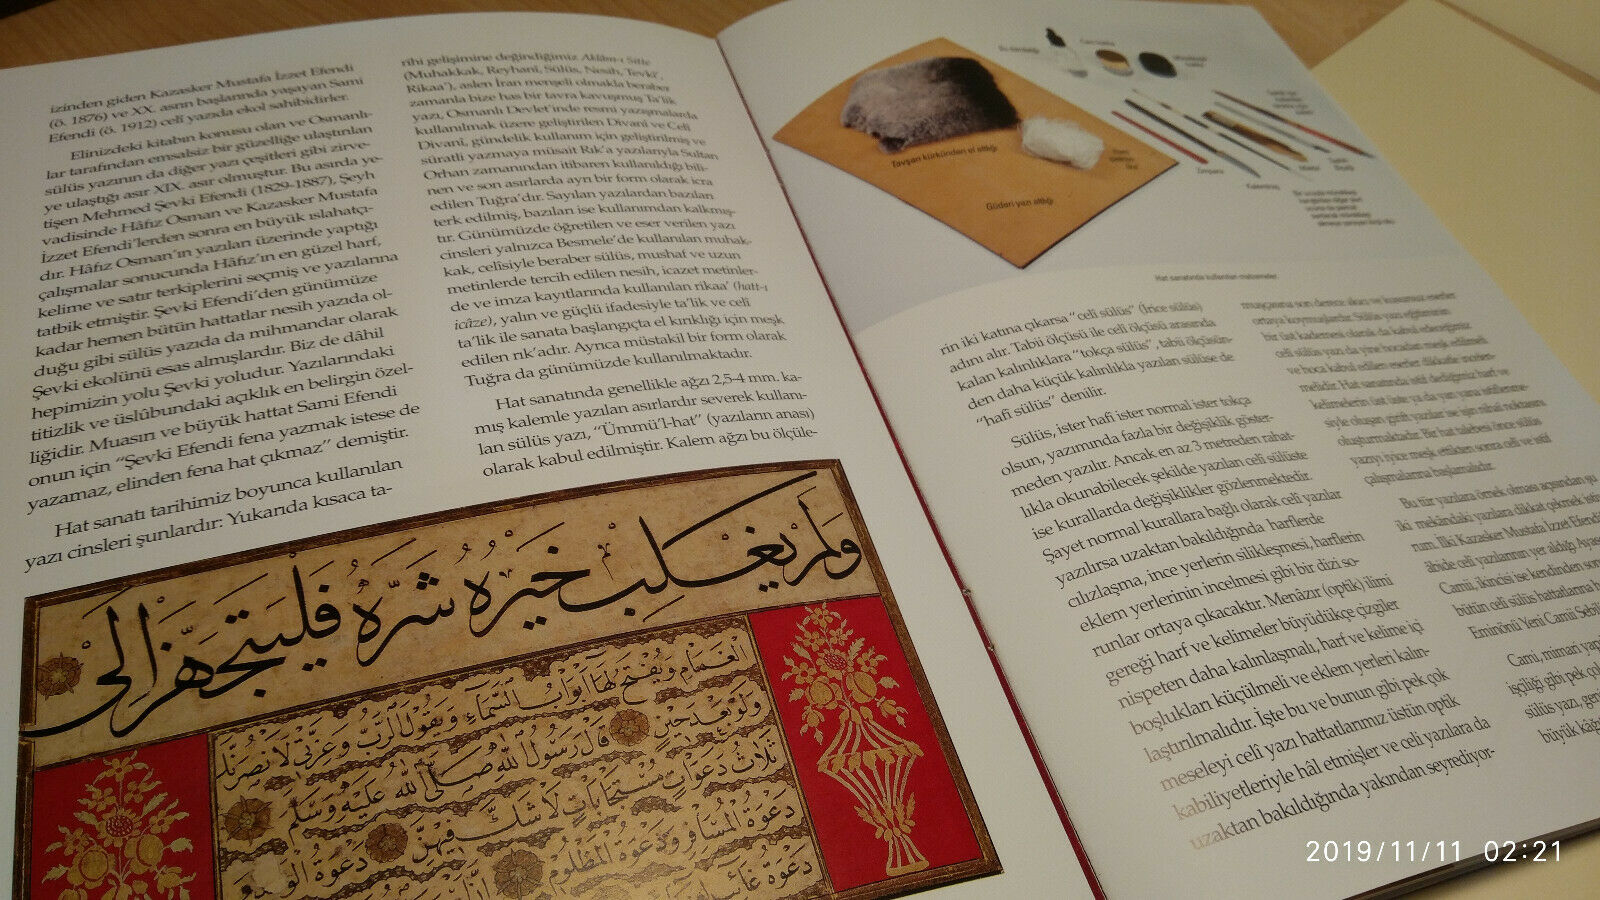 izinden giden Kazasker Mustafa İzzet Efendi
(ö. 1876) ve XX. asrın başlarında yaşayan Sami
Efendi (ö. 1912) celî yazıda ekol sahibidirler.
Elinizdeki kitabın konusu olan ve Osmanlı-
lar tarafından emsalsiz bir güzelliğe ulaştırılan
sülüs yazının da diğer yazı çeşitleri gibi zirve-
ye ulaştığı asır XIX. asır olmuştur. Bu asırda ye-
tişen Mehmed Şevki Efendi (1829-1887), Şeyh
vadisinde Hâfız Osman ve Kazasker Mustafa
İzzet Efendi'lerden sonra en büyük ıslahatçı-
dır. Hâfız Osman'ın yazıları üzerinde yaptığı
çalışmalar sonucunda Hâfız'ın en güzel harf,
kelime ve satır terkiplerini seçmiş ve yazılarına
tatbik etmiştir. Şevki Efendi'den günümüze
kadar hemen bütün hattatlar nesih yazıda ol-
duğu gibi sülüs yazıda da mihmandar olarak
Şevki ekolünü esas almışlardır. Biz de dâhil
hepimizin yolu Şevki yoludur. Yazılarındaki
titizlik ve üslûbundaki açıklık en belirgin özel-
liğidir. Muasırı ve büyük hattat Sami Efendi
onun için "Şevki Efendi fena yazmak istese de
yazamaz, elinden fena hat çıkmaz" demiştir.
Hat sanatı tarihimiz boyunca kullanılan
yazı cinsleri şunlardır: Yukarıda kısaca ta-
rihi gelişimine değindiğimiz Aklâm-ı Sitte
(Muhakkak, Reyhanî, Sülüs, Nesih, Tevkî',
Rikaa'), aslen İran menşeli olmakla beraber
zamanla bize has bir tavra kavuşmuş Ta'lik
yazı, Osmanlı Devlet'inde resmi yazışmalarda
kullanılmak üzere geliştirilen Divanî ve Celî
Divanî, gündelik kullanım için geliştirilmiş ve
süratli yazmaya müsait Rık'a yazılarıyla Sultan
Orhan zamanından itibaren kullanıldığı bili-
nen ve son asırlarda ayrı bir form olarak icra
edilen Tuğra'dır. Sayılan yazılardan bazıları
terk edilmiş, bazıları ise kullanımdan kalkmış-
tır. Günümüzde öğretilen ve eser verilen yazı
cinsleri yalnızca Besmele'de kullanılan muhak-
kak, celîsiyle beraber sülüs, mushaf ve uzun
metinlerde tercih edilen nesih, icazet metinler-
de ve imza kayıtlarında kullanılan rikaa' (hatt-ı
icâze), yalın ve güçlü ifadesiyle ta'lik ve celî
ta'lik ile sanata başlangıçta el kırıklığı için meşk
edilen rık'adır. Ayrıca müstakil bir form olarak
Tuğra da günümüzde kullanılmaktadır.
Hat sanatında genellikle ağzı 2,5-4 mm. ka-
mış kalemle yazılan asırlardır severek kullanı-
lan sülüs yazı, "Ümmü'l-hat" (yazıların anası)
olarak kabul edilmiştir. Kalem ağzı bu ölçüle-
ولم يغلب خيره شره فليتجهز الى
الغمام ويفتح لها ابواب السماء ويقول الرب وعزتي لانصرنك
ولو بعد حين قال رسول الله صلى الله عليه وسلم
ثلاث دعوات مستجابات لا شك فيهن
دعوة المسافر ودعوة المظلوم
Tavşan kürkünden el altlığı
Güderi yazı altlığı
Hat sanatında kullanılan malzemeler.
rin iki katına çıkarsa "celî sülüs" (İrice sülüs)
adını alır. Tabii ölçüsü ile celî ölçüsü arasında
kalan kalınlıklara "tokça sülüs", tabii ölçüsün-
den daha küçük kalınlıkla yazılan sülüse de
"hafî sülüs" denilir.
Sülüs, ister hafî ister normal ister tokça
olsun, yazımında fazla bir değişiklik göster-
meden yazılır. Ancak en az 3 metreden rahat-
lıkla okunabilecek şekilde yazılan celî sülüste
ise kurallarda değişiklikler gözlenmektedir.
Şayet normal kurallara bağlı olarak celî yazılar
yazılırsa uzaktan bakıldığında harflerde
cılızlaşma, ince yerlerin silikleşmesi, harflerin
eklem yerlerinin incelmesi gibi bir dizi so-
runlar ortaya çıkacaktır. Menâzır (optik) ilimi
gereği harf ve kelimeler büyüdükçe çizgiler
nispeten daha kalınlaşmalı, harf ve kelime içi
boşlukları küçülmeli ve eklem yerleri kalın-
laştırılmalıdır. İşte bu ve bunun gibi pek çok
meseleyi celî yazı hattatlarımız üstün optik
kabiliyetleriyle hâl etmişler ve celî yazılara da
uzaktan bakıldığında yakından seyrediyor-
muşçasına son derece akıcı ve kusursuz eserler
ortaya koymuşlardır. Sülüs yazı eğitiminin
bir üst kademesi olarak da kabul edeceğimiz
celî sülüs yazı da yine hocadan meşk edilmeli
ve hoca kabul edilen eserler dikkatle incelen-
melidir. Hat sanatında istif dediğimiz harf ve
kelimelerin üst üste ya da yan yana istiflenme-
siyle oluşan girift yazılar ise işin nihai noktasını
oluşturmaktadır. Bir hat talebesi önce sülüs
yazıyı iyice meşk ettikten sonra celî ve istif
çalışmalarına başlamalıdır.
Bu tür yazılara örnek olması açısından şu
iki mekândaki yazılara dikkat çekmek isti
rum. İlki Kazasker Mustafa İzzet Efendi
âbide celî yazılarının yer aldığı Ayas
Camii, ikincisi ise kendinden son
bütün celî sülüs hattatlarına h
Eminönü Yeni Camii Sebil
Cami, mimari yap
işçiliği gibi pek ço
sülüs yazı, geni
büyük kâğı
2019/11/11 02:21